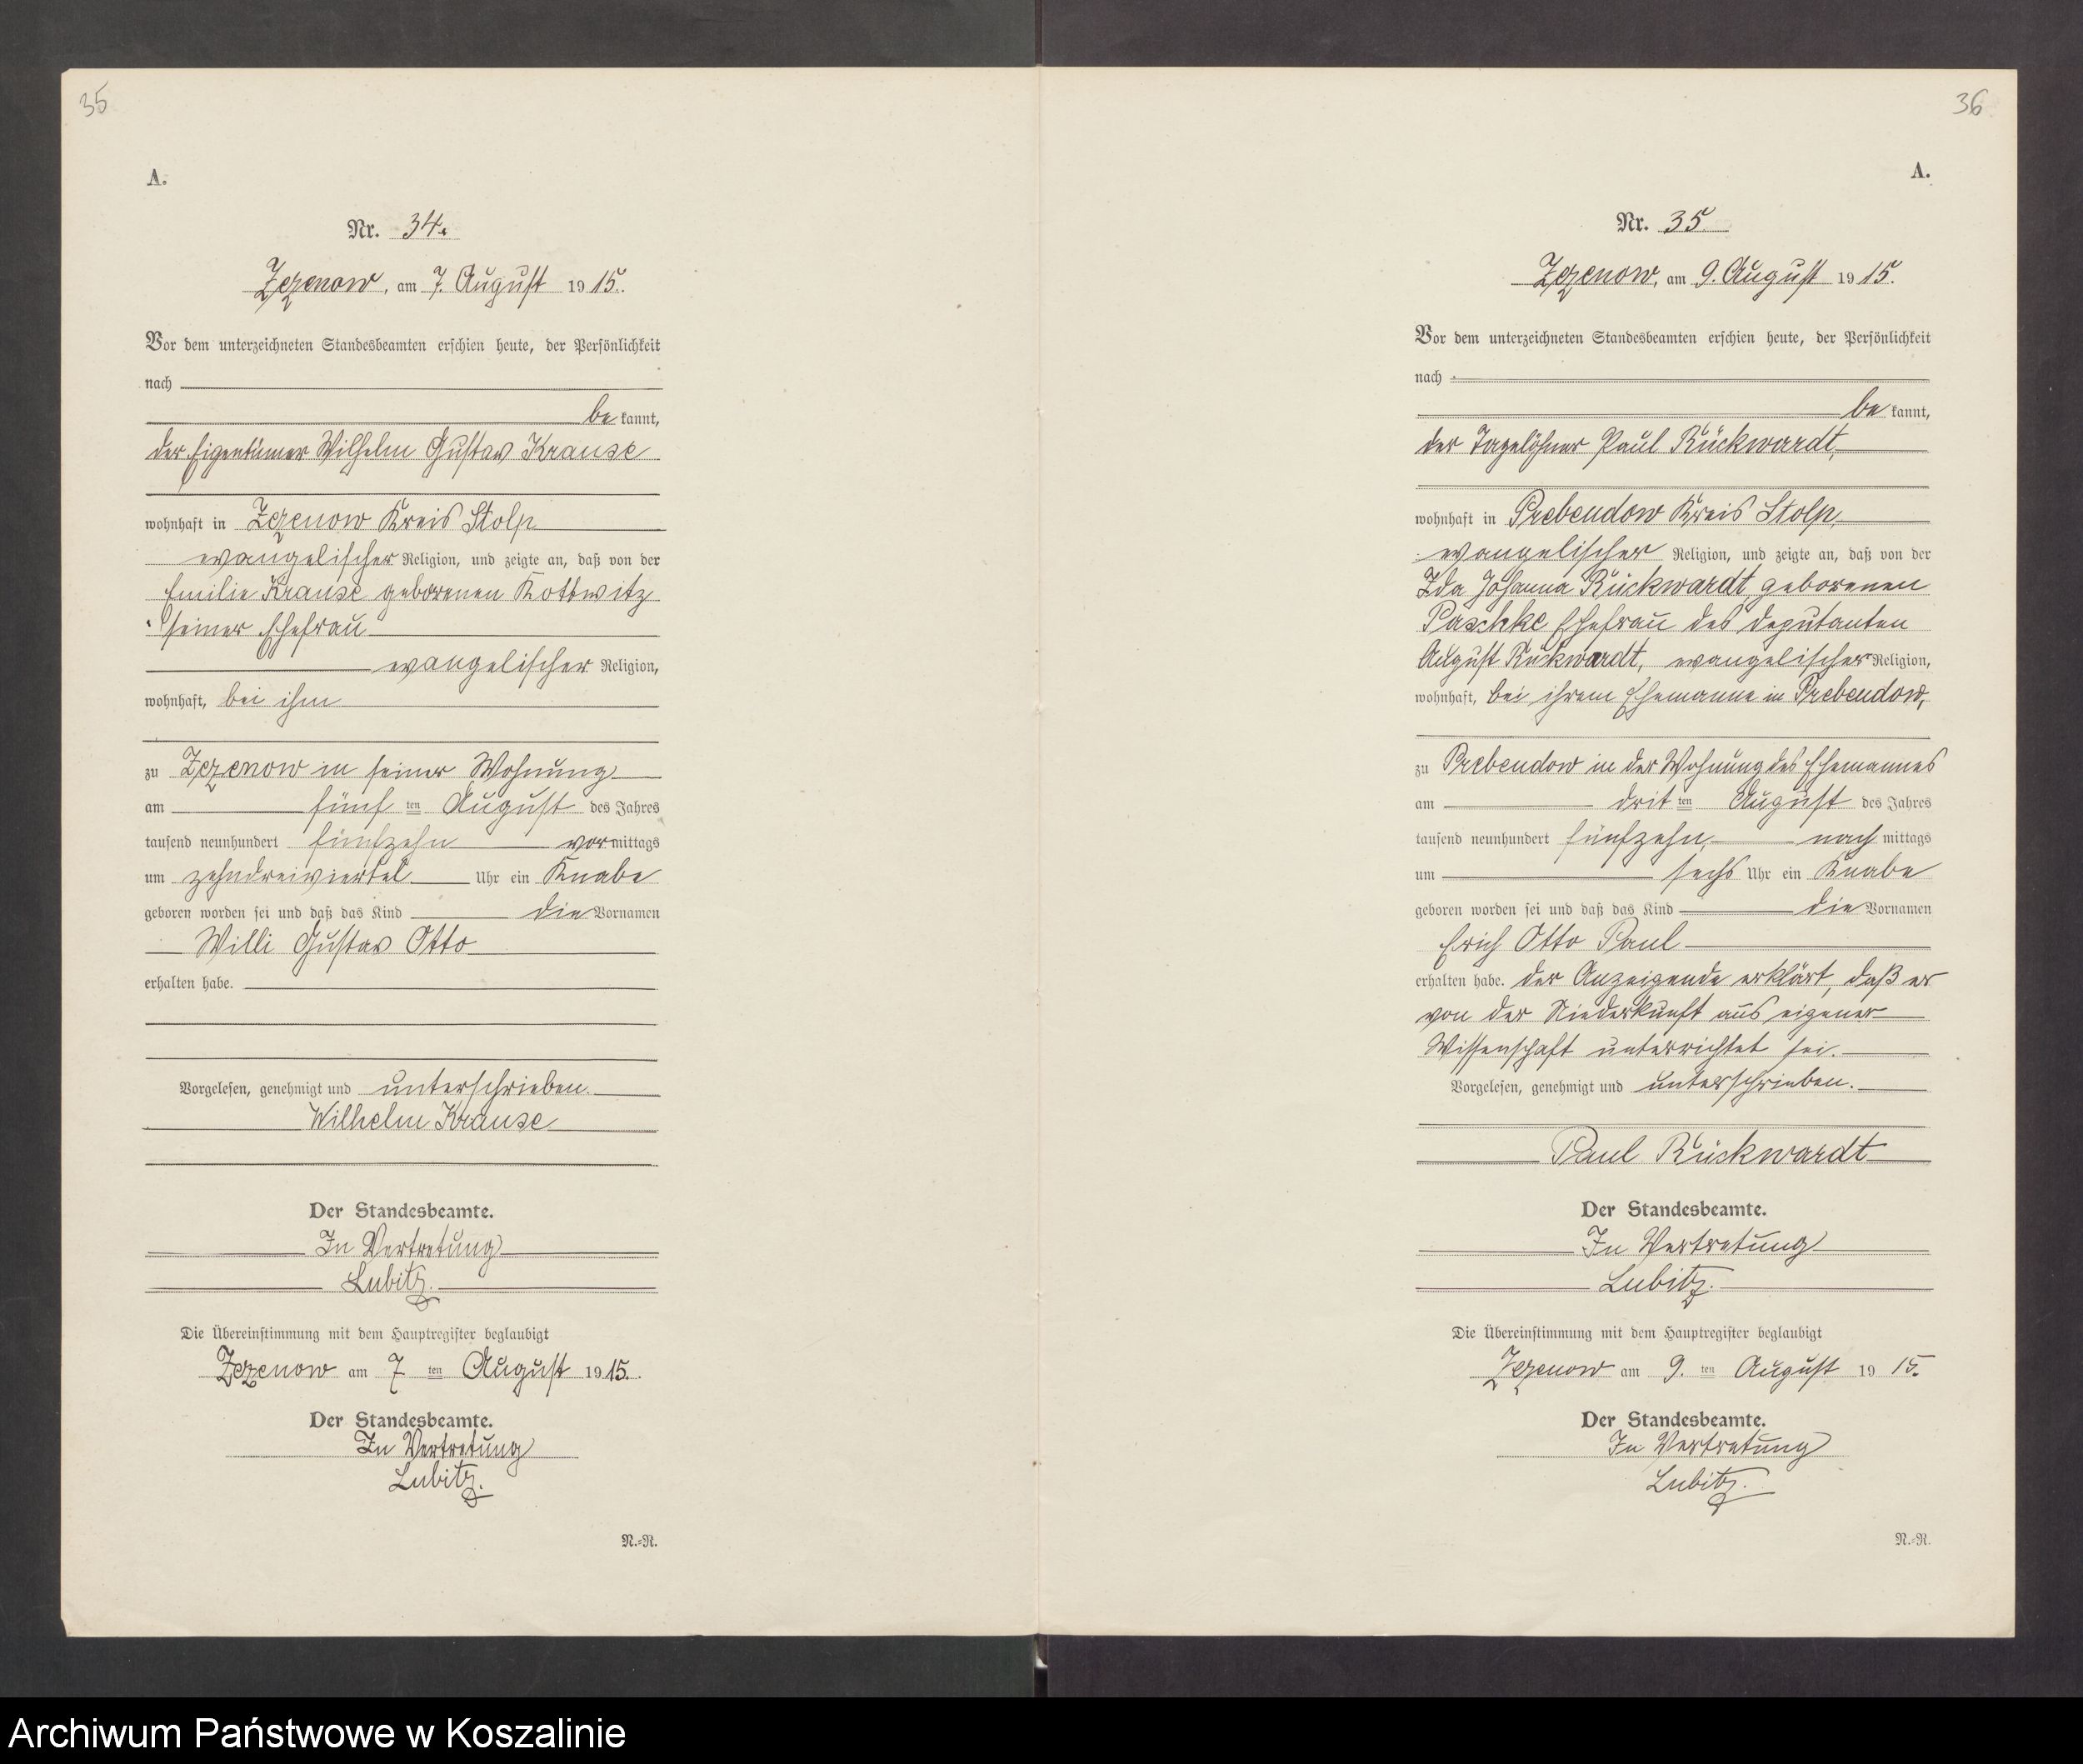 35
A.
Nr. 34.
Zezenow, am 7. August 1915.
Vor dem unterzeichneten Standesbeamten erschien heute, der Persönlichkeit
nach
be kannt,
der Eigentümer Wilhelm Gustav Krause
wohnhaft in Zezenow Kreis Stolp
evangelischer Religion, und zeigte an, daß von der
Emilie Krause geborenen Kottwitz
seiner Ehefrau
evangelischer Religion,
wohnhaft, bei ihm
zu Zezenow in seiner Wohnung
am fünf ten August des Jahres
tausend neunhundert fünfzehn vormittags
um zehndreiviertel Uhr ein Knabe
geboren worden sei und daß das Kind die Vornamen
Willi Gustav Otto
erhalten habe.
Vorgelesen, genehmigt und unterschrieben.
Wilhelm Krause
Der Standesbeamte.
In Vertretung
Lubitz.
Die Übereinstimmung mit dem Hauptregister beglaubigt
Zezenow am 7 ten August 1915.
Der Standesbeamte.
In Vertretung
Lubitz.
N.-R.
36
A.
Nr. 35
Zezenow, am 9. August 1915.
Vor dem unterzeichneten Standesbeamten erschien heute, der Persönlichkeit
nach
be kannt,
der Tagelöhner Paul Rückwardt,
wohnhaft in Prebendow Kreis Stolp
evangelischer Religion, und zeigte an, daß von der
Ida Johanna Rückwardt, geborenen
Paschke Ehefrau des Deputanten
August Rückwardt, evangelischer Religion,
wohnhaft, bei ihrem Ehemanne in Prebendow,
zu Prebendow in der Wohnung des Ehemannes
am drit ten August des Jahres
tausend neunhundert fünfzehn, nach mittags
um sechs Uhr ein Knabe
geboren worden sei und daß das Kind die Vornamen
Erich Otto Paul
erhalten habe. Der Anzeigende erklärt, daß er
von der Niederkunft aus eigener
Wissenschaft unterrichtet sei.
Vorgelesen, genehmigt und unterschrieben.
Paul Rückwardt
Der Standesbeamte.
In Vertretung
Lubitz.
Die Übereinstimmung mit dem Hauptregister beglaubigt
Zezenow am 9. ten August 1915.
Der Standesbeamte.
In Vertretung
Lubitz.
N.-R.
Archiwum Państwowe w Koszalinie